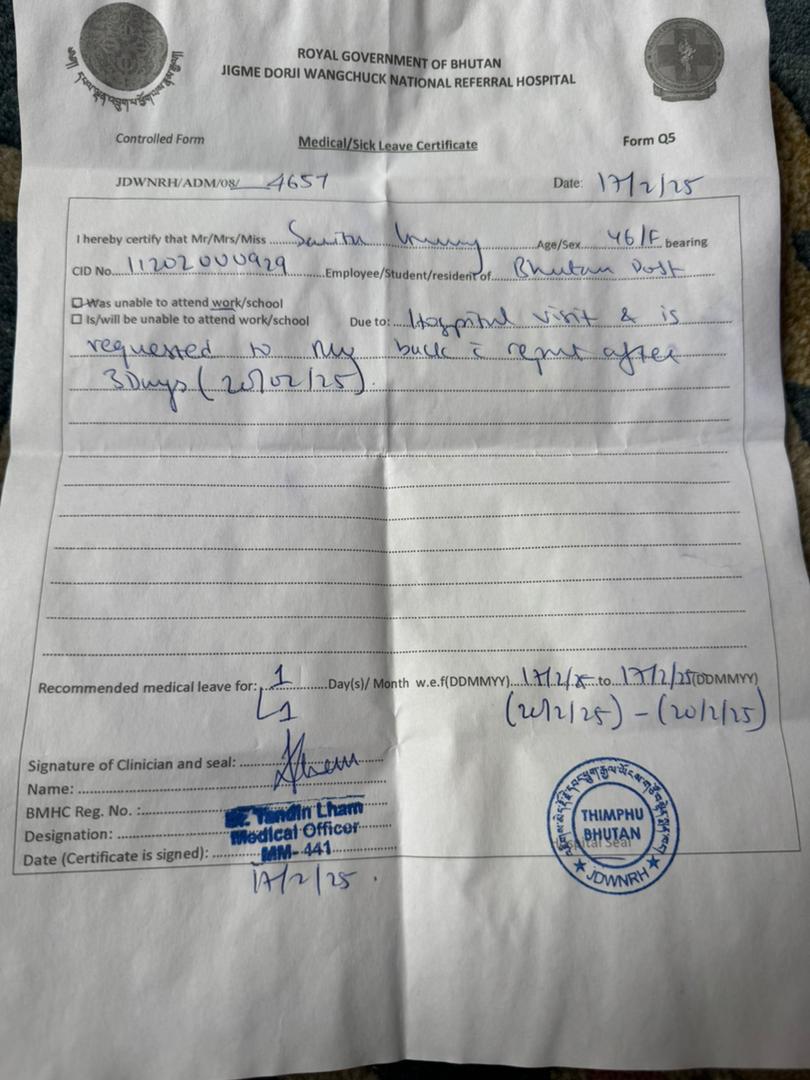 ROYAL GOVERNMENT OF BHUTAN
JIGME DORJI WANGCHUCK NATIONAL REFERRAL HOSPITAL
Controlled Form Medical/Sick Leave Certificate Form Q5
JDWNRH/ADM/08/ 4657 Date: 17/2/25
I hereby certify that Mr/Mrs/Miss Age/Sex 46/F bearing
CID No. 11202000929 Employee/Student/resident of Bhutan Post
Was unable to attend work/school
Is/will be unable to attend work/school Due to: Hospital visit & is
requested to back report after
3 Days (20/02/25).
Recommended medical leave for: 1 Day(s)/ Month w.e.f(DDMMYY) 17/2/25 to 17/2/25 (DDMMYY)
1 (20/2/25) – (20/2/25)
Signature of Clinician and seal:
Name:
BMHC Reg. No. : Dr. Tandin Lham
Designation: Medical Officer
Date (Certificate is signed): MM-441
17/2/25.
THIMPHU
BHUTAN
Hospital Seal
JDWNRH